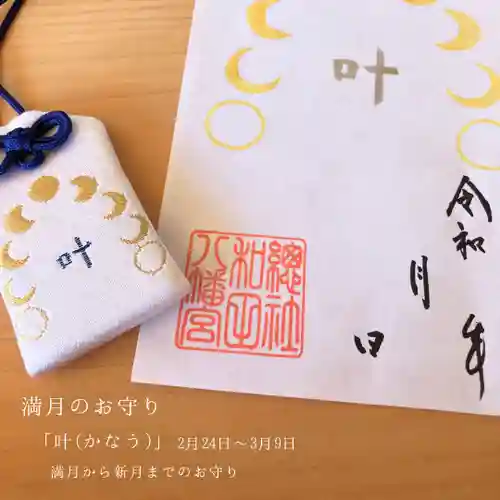 叶
叶
令和
年
月
日
總社
和田
八幡宮
満月のお守り
「叶(かなう)」 2月24日～3月9日
満月から新月までのお守り